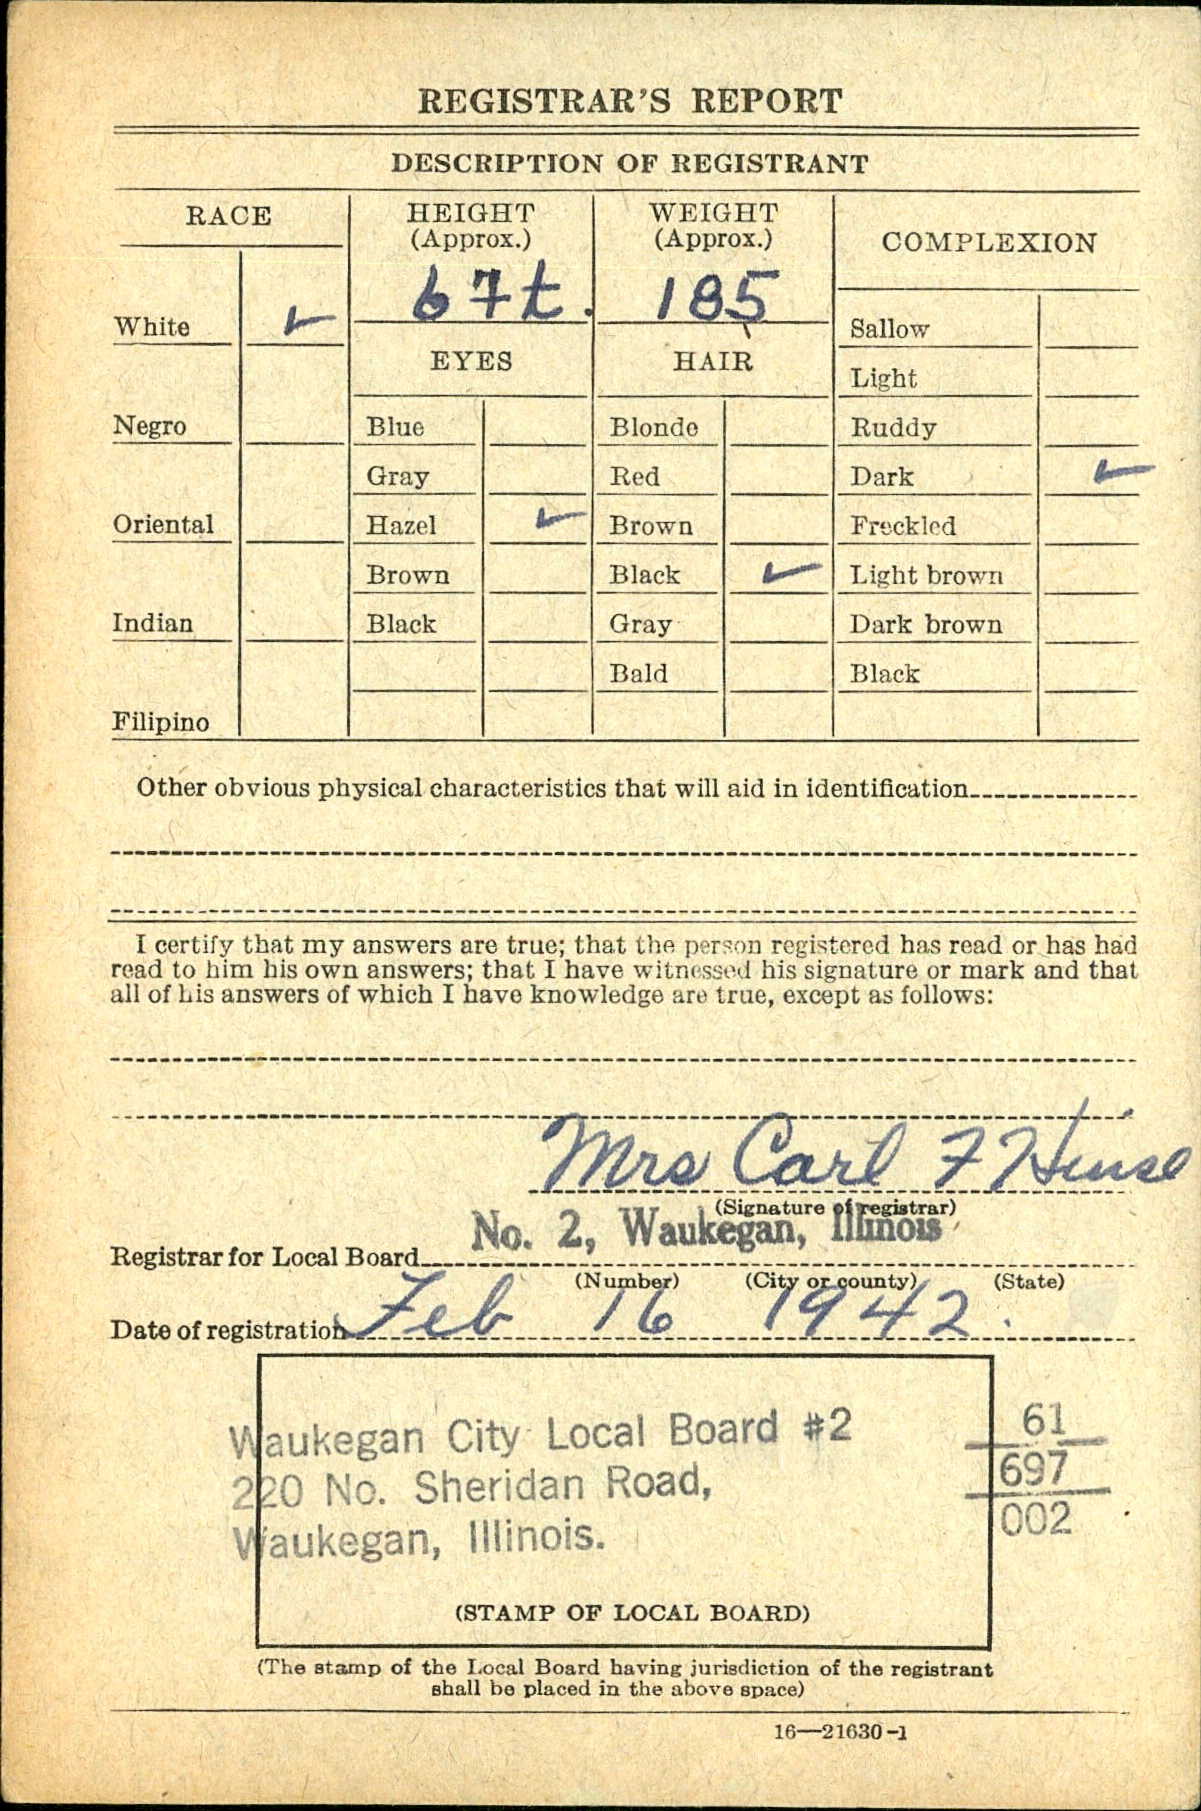 REGISTRAR'S REPORT
DESCRIPTION OF REGISTRANT
RACE
HEIGHT
(Approx.)
WEIGHT
(Approx.)
COMPLEXION
6 Ft.
185
White ✓
Sallow
EYES
HAIR
Light
Negro
Blue
Blonde
Ruddy
Gray
Red
Dark ✓
Oriental
Hazel ✓
Brown
Freckled
Brown
Black ✓
Light brown
Indian
Black
Gray
Dark brown
Bald
Black
Filipino
Other obvious physical characteristics that will aid in identification
I certify that my answers are true; that the person registered has read or has had
read to him his own answers; that I have witnessed his signature or mark and that
all of his answers of which I have knowledge are true, except as follows:
Mrs Carl F
(Signature of registrar)
Registrar for Local Board No. 2, Waukegan, Illinois
(Number) (City or county) (State)
Date of registration Feb 16 1942.
Waukegan City Local Board #2
220 No. Sheridan Road,
Waukegan, Illinois.
61
697
002
(STAMP OF LOCAL BOARD)
(The stamp of the Local Board having jurisdiction of the registrant
shall be placed in the above space)
16—21630-1